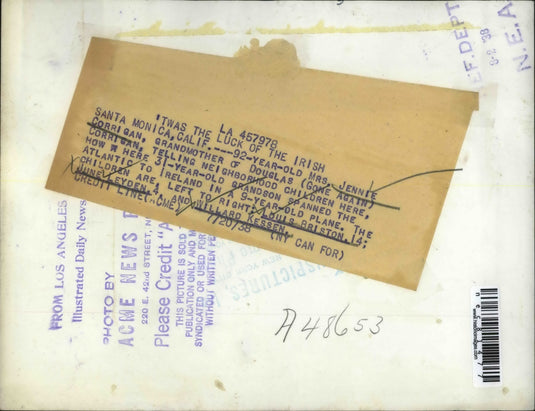 LA 457978
'TWAS THE LUCK OF THE IRISH
SANTA MONICA, CALIF.---92-YEAR-OLD MRS. JENNIE
CORRIGAN, GRANDMOTHER OF DOUGLAS (GONE AGAIN)
CORRIGAN, TELLING NEIGHBORHOOD CHILDREN HERE,
HOW HERE 31-YEAR-OLD GRANDSON SPANNED THE
ATLANTIC TO IRELAND IN A 9-YEAR-OLD PLANE. THE
CHILDREN ARE, LEFT TO RIGHT: LOUIS PRISTON, 14;
JUNE LEYDEN, 4, AND WILLARD KESSEN.
CREDIT LINE (ACME) 7/20/38 (NY CAN FOR)
EF. DEPT
N.E.A.
FROM LOS ANGELES
Illustrated Daily News
PHOTO BY
ACME NEWS
220 E. 42nd STREET, N
Please Credit "A
THIS PICTURE IS SOLD
PUBLICATION ONLY AND M
SYNDICATED OR USED FOR
WITHOUT WRITTEN PE
A48653